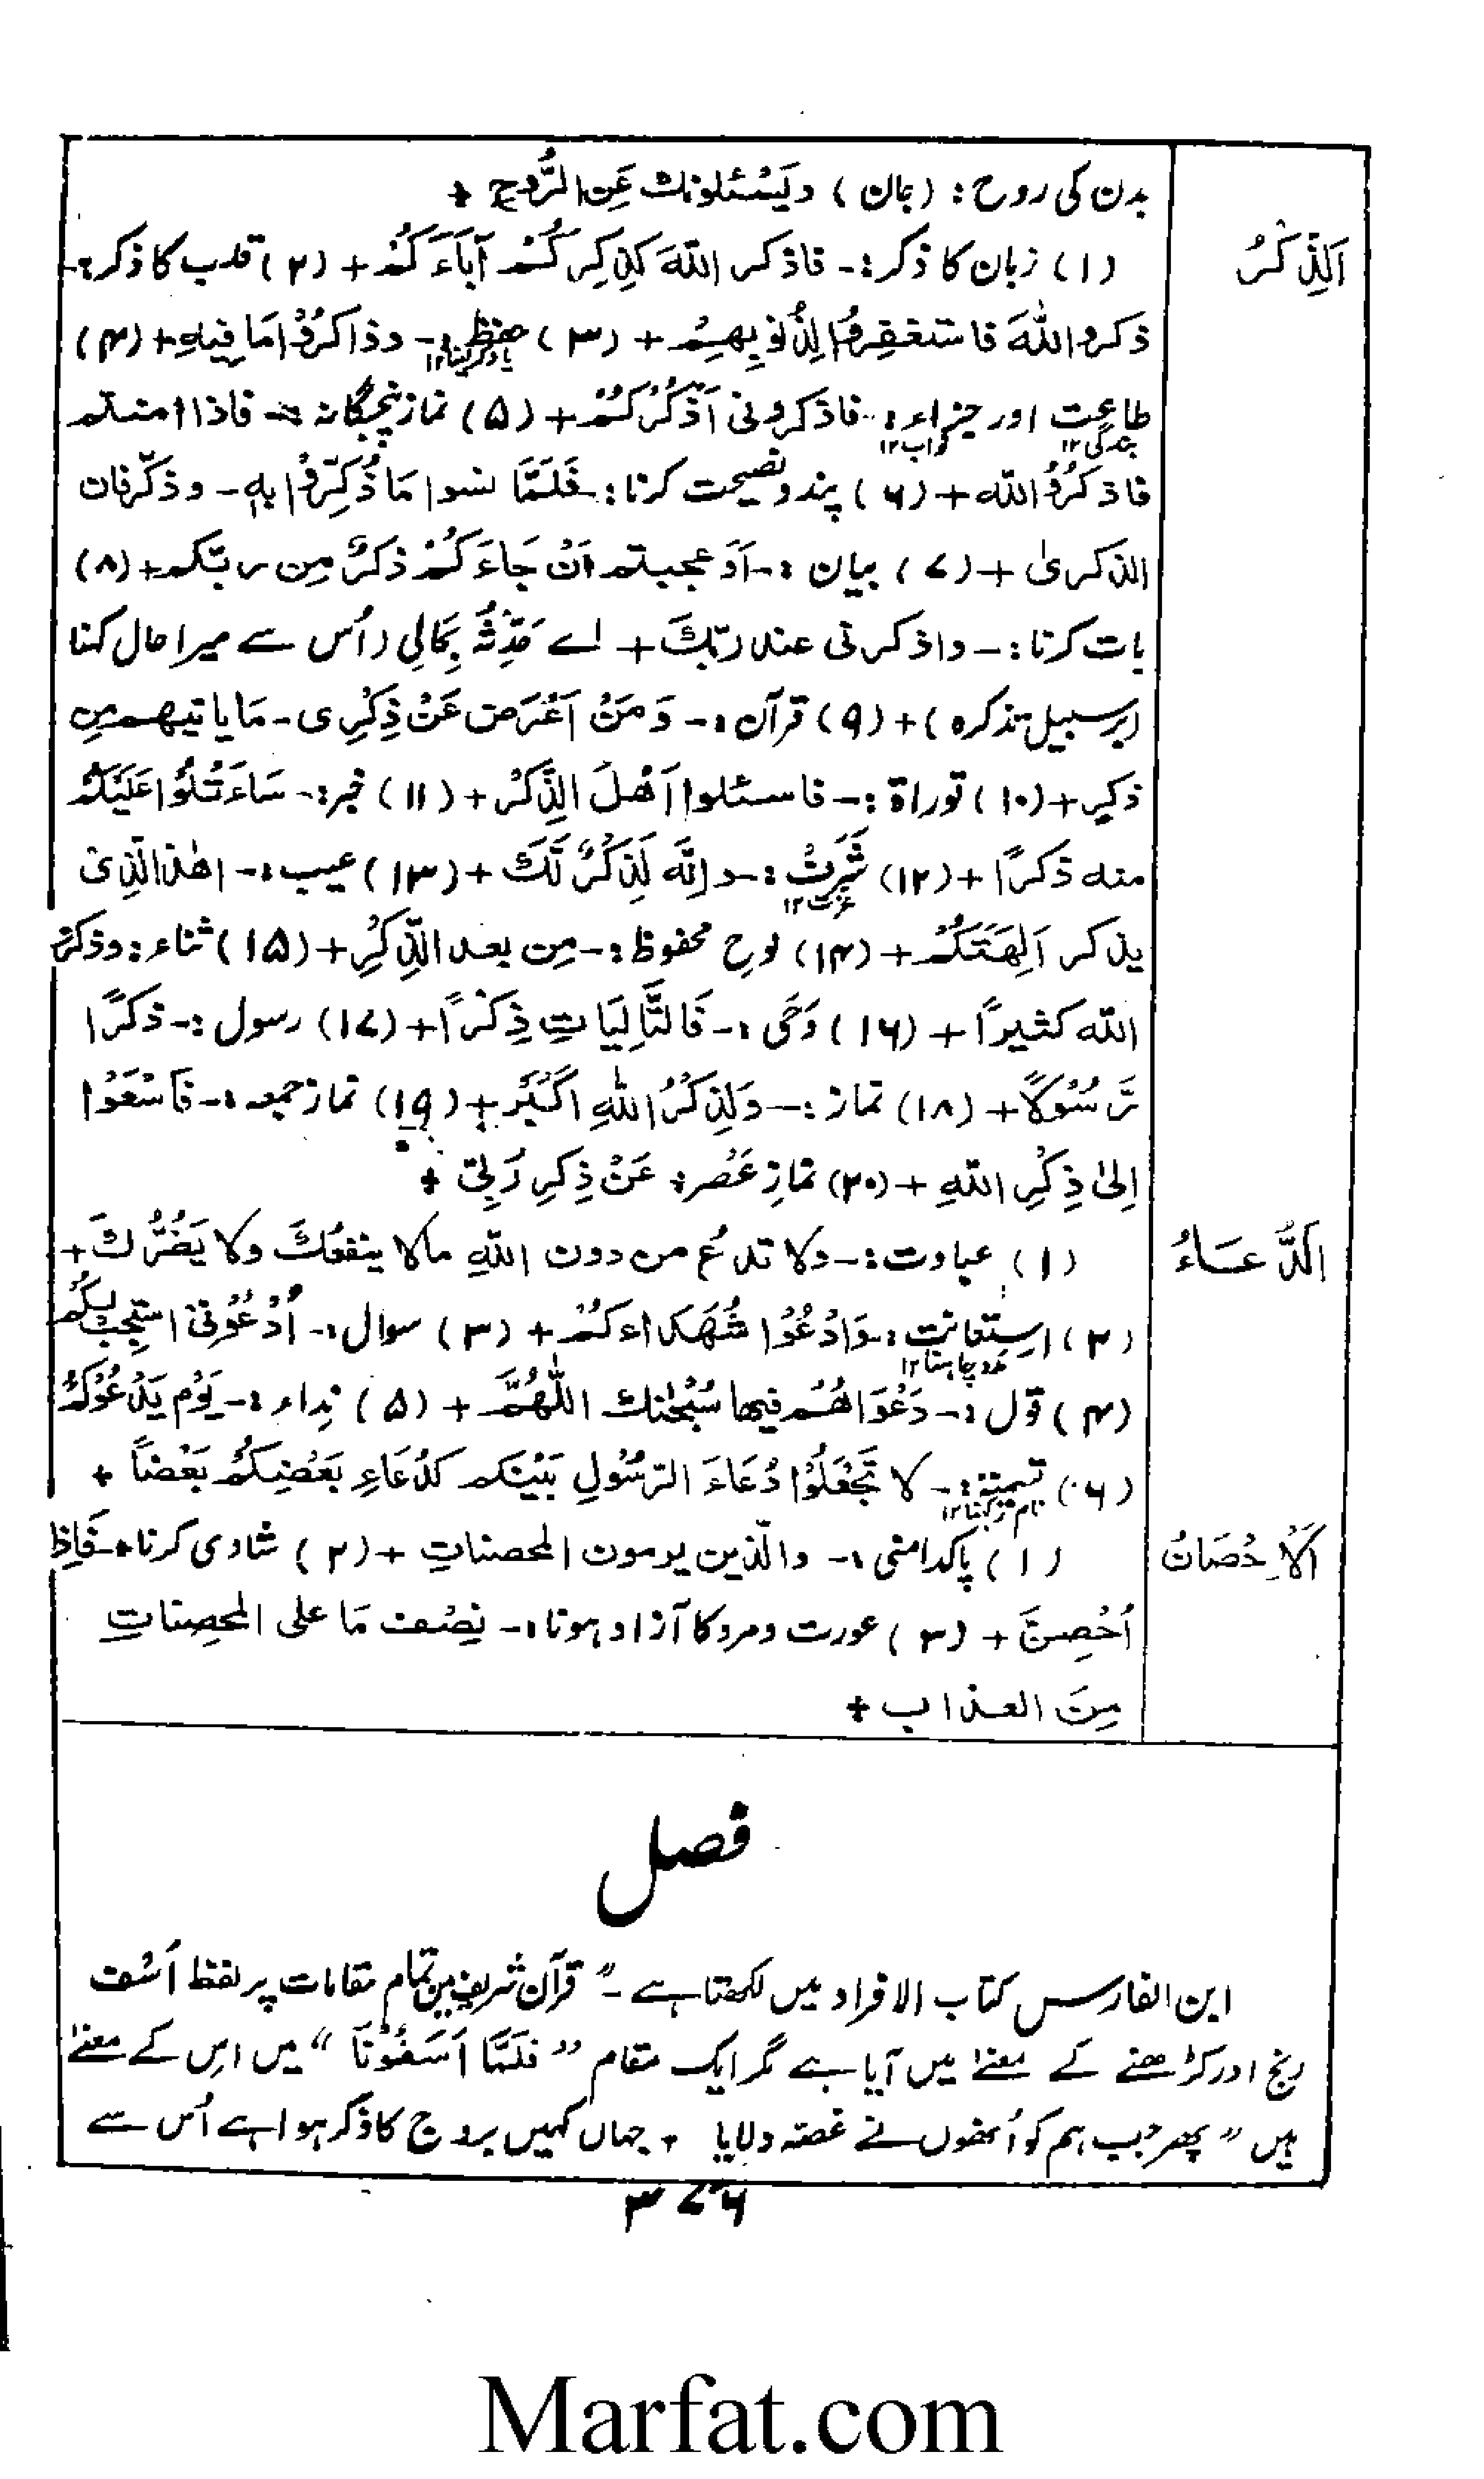 بدن کی روح: (جان) ویَسْئلونك عَنِ الرُّوحِ +
اَلذِّكْرُ (۱) زبان کا ذکر:- فاذكر اللهَ كذِكِركُمْ آبَاءَكُمْ + (۲) قلب کا ذکر:-
ذكروا اللهَ فاستغفِرُوا لِذُنُوبِهِمْ + (۳) حفظ:- وذاكرُوْا مَا فِيهِ + (۴)
یاد کرلینا ۱۲
طاعت اور جزاء:- فاذكرونی اَذْكُرْكُمْ + (۵) نماز پنجگانہ:- فاذا امنتم
بندگی ۱۲ ثواب ۱۲
فاذكرُوُا الله + (۶) پند و نصیحت کرنا:- فَلَمَّا نسوا مَا ذُكِّرُوْا بِهِ - و ذكّر فان
الذكرىٰ + (۷) بیان:- اَوَعجبتم اَنْ جَاءَكُمْ ذكرٌ مِن ربّكم + (۸)
بات کرنا:- واذكرنی عند ربِّكَ + اے حَدِّثْہُ بِحَالِی (اُس سے میرا حال کہنا
(برسبیل تذکرہ) + (۹) قرآن:- وَمَنْ اَعْرَضَ عَنْ ذِكْرِی - مَا یاتیھم مِن
ذكرٍ + (۱۰) توراۃ:- فاسئلوا اَهْلَ الذِّكْرْ + (۱۱) خبر:- سَاَءَتْلُوْا عَلَيْكُمْ
منه ذكرًا + (۱۲) شَرَفْ:- و اِنَّه لَذِكْرٌ لَّكَ + (۱۳) عیب:- اھٰذا الَّذِی
عزت ۱۲
یذكر اٰلِهَتَكُمْ + (۱۴) لوحِ محفوظ:- مِن بعد الذِّكْرِ + (۱۵) ثناء: وذكر
الله كثیرًا + (۱۶) وَحَی:- فَالتَّالِیَاتِ ذِكْرًا + (۱۷) رسول:- ذكرًا
رَّسُوْلًا + (۱۸) نماز:- وَلَذِكْرُ اللهِ اَكْبَرُ + (۱۹) نماز جمعہ:- فَاسْعَوْا
اِلیٰ ذِكْرِ اللهِ + (۲۰) نمازِ عَصْر: عَنْ ذِكْرِ رَبِّی +
اَلدُّعَاءُ (۱) عبادت:- ولا تدعُ من دون اللهِ مالا ینفعُكَ ولا یَضُرُّكَ +
(۲) اِستِعانت:- وَادْعُوْا شُهَدَاءكُمْ + (۳) سوال:- اُدْعُوْنِی استجبْ لَكُمْ
مدد چاہنا ۱۲
(۴) قول:- دَعْوَاهُمْ فِیھا سُبْحٰنك اللّٰهُمَّ + (۵) نِداء:- یَوْم یَدْعُوْكُمْ
(۶) تسمیّہ:- لا تَجْعَلُوْا دُعَاءَ الرّسُوْلِ بَیْنَكم كَدُعَاءِ بَعْضِكُمْ بَعْضاً +
نام رکھنا ۱۲
اَلْاِحْصَانُ (۱) پاکدامنی:- والّذین یرمون المحصنات + (۲) شادی کرنا:- فَاِذَا
اُحْصِنَّ + (۳) عورت و مرد کا آزاد ہونا:- نِصْف مَا علی المحصِنَاتِ
مِنَ العذاب +
فصل
ابن الفارس کتاب الافراد میں لکھتا ہے - "قرآن شریف میں تمام مقامات پر لفظ اَسَف
رنج اور کڑھنے کے معنےٰ میں آیا ہے مگر ایک مقام "فَلَمَّا اَسَفُوْنَا" میں اِس کے معنےٰ
ہیں "پھر جب ہم کو اُنھوں نے غصّہ دلایا + جہاں کہیں بروج کا ذکر ہوا ہے اُس سے
۳۷۶
Marfat.com